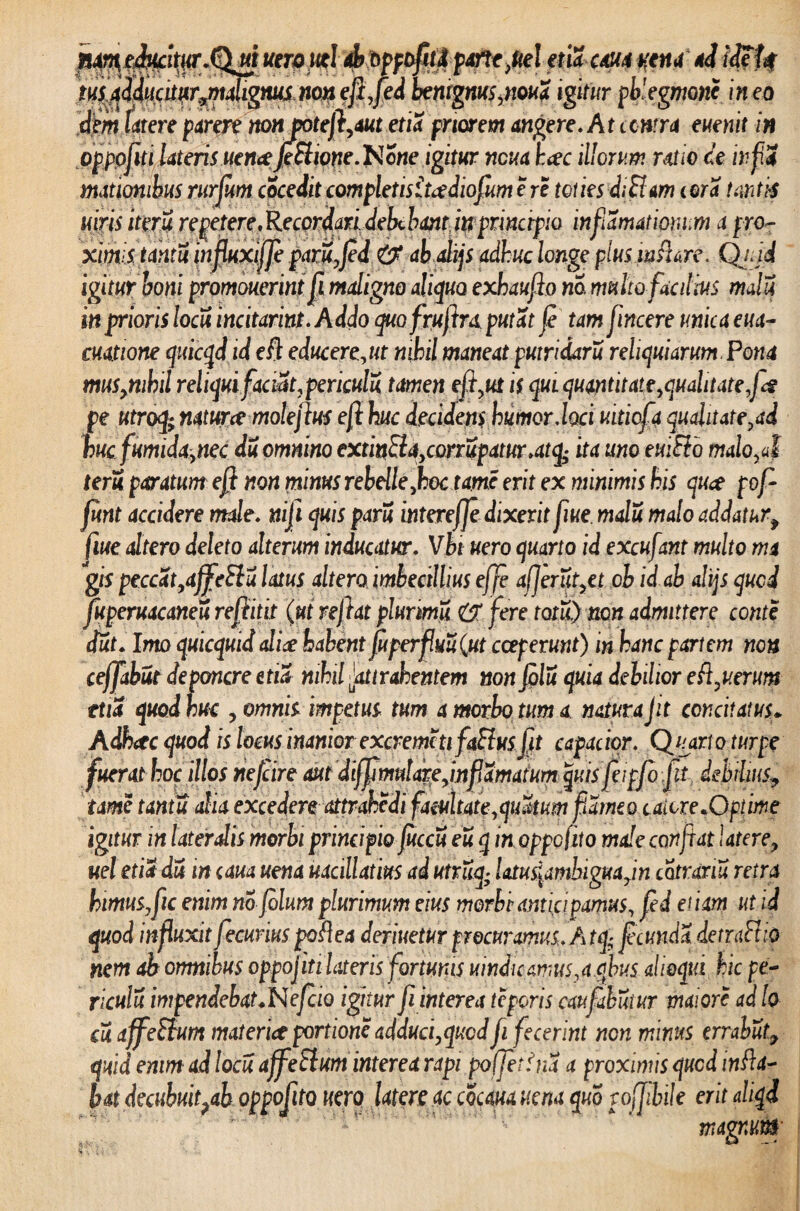 nam educitur. Qui uero uel ab oppositā parte, uel etiā caua uena ad idē la
tus adducitur, malignus non est, sed benignus, nouā igitur phlegmonē in eo
dem latere parere non potest, aut etiā priorem angere. At contra euenit in
oppositi lateris uenæ sectione. None igitur noua hæc illorum ratio de inflā
mationibus rursum cōcedit completis
uiris iterū repetere. Recordari debebant in principio inflāmationum a pro-
ximis tantū influxisse parū, sed & ab alijs adhuc longe plus instare. Quid
igitur boni promouerint si maligno aliquo exhausto nō multo facilius malū
in prioris locū incitarint. Addo quo frustra putāt se tam sincere unica eua-
cuatione quicqd id est educere, ut nihil maneat putridarū reliquiarum. Pona
mus, nihil reliqui faciāt, periculū tamen est, ut is qui quantitate, qualitate, sæ
pe utroq; naturæ molestus est huc decidens humor. loci uitiosa qualitate, ad
huc fumida, nec dū omnino extincta, corrūpatur. atq; ita uno euicto malo, al
terū paratum est non minus rebelle, hoc tamē erit ex minimis his quæ pos-
sunt accidere male. nisi quis parū interesse dixerit siue malū malo addatur,
siue altero deleto alterum inducatur. Vbi uero quarto id excusant multo ma
gis peccāt, affectū latus altero imbecillius esse asserūt, et ob id ab alijs quod
superuacaneū restitit (ut restat plurimū & fere totū) non admittere contē
dūt. Imo quicquid aliæ habent superfluū (ut cœperunt) in hanc partem non
cessabūt deponere etiā nihil attrahentem non solū quia debilior est, uerum
etiā quod huc , omnis impetus tum a morbo tum a natura sit concitatus.
Adhæc quod is locus inanior excremēti factus sit capacior. Quarto turpe
fuerat hoc illos nescire aut dissimulare, inflāmatum quis seipso sit debilius,
tamē tantū alia excedere attrahēdi facultate, quātum flāmeo calore. Optime
igitur in lateralis morbi principio succū eū q in opposito male constat latere,
uel etiā dū in caua uena uacillatius ad utrūq; latus ambigua, in cōtrariū retra
himus, sic enim nō solum plurimum eius morbi anticipamus, sed etiam ut id
quod influxit securius postea deriuetur procuramus. Atq; secundā detractio
nem ab omnibus oppositi lateris fortunis uindicamus, a qbus alioqui hic pe-
riculū impendebat. Nescio igitur si interea tēporis causabūtur maiorē ad lo
cū affectum materiæ portionē adduci, quod si fecerint non minus errabūt,
quid enim ad locū affectum interea rapi posset nā a proximis quod insta-
bat decubuit, ab opposito uero latere ac cōcaua uena quo possibile erit aliqd
magnum